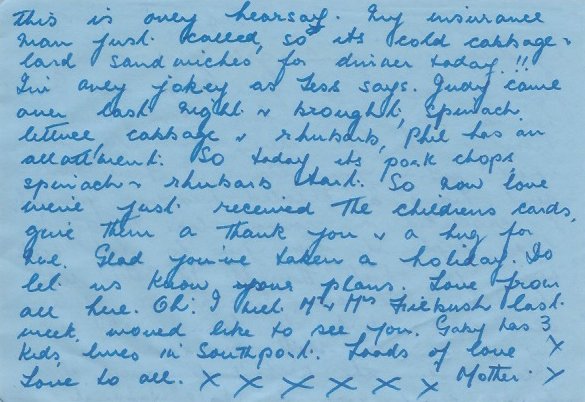 this is only hearsay. My insurance
man just called, so its cold cabbage &
lard sandwiches, for dinner today!!
I'm only jokey as Tess says. Judy came
over last night & brought, Spinach
lettuce cabbage & rhubarb, Phil has an
allottment. So today its pork chops,
spinach & rhubarb tart. So now love
we've just received the childrens cards,
give them a thank you & a hug for
me. Glad you've taken a holiday. Do
let us know your plans. Love from
all here. Oh! I met Mr & Mrs last
week, would like to see you. Gaby has 3
kids, lives in Southport. Loads of love X
Love to all. X X X X X X Mother. X